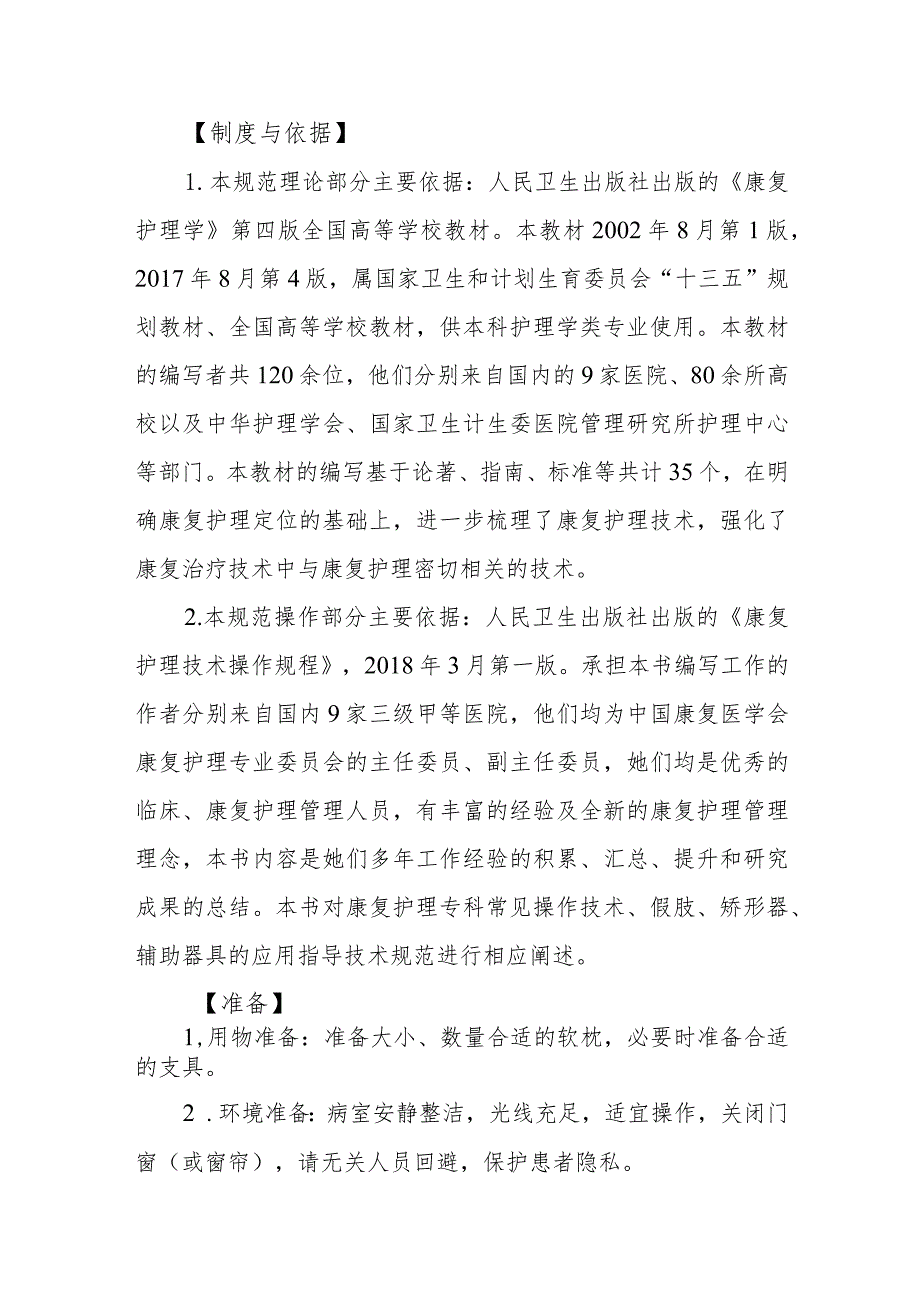 【制度与依据】
1.本规范理论部分主要依据：人民卫生出版社出版的《康复
护理学》第四版全国高等学校教材。本教材 2002 年 8 月第 1 版，
2017 年 8 月第 4 版，属国家卫生和计划生育委员会“十三五”规
划教材、全国高等学校教材，供本科护理学类专业使用。本教材
的编写者共 120 余位，他们分别来自国内的 9 家医院、80 余所高
校以及中华护理学会、国家卫生计生委医院管理研究所护理中心
等部门。本教材的编写基于论著、指南、标准等共计 35 个，在明
确康复护理定位的基础上，进一步梳理了康复护理技术，强化了
康复治疗技术中与康复护理密切相关的技术。
2.本规范操作部分主要依据：人民卫生出版社出版的《康复
护理技术操作规程》，2018 年 3 月第一版。承担本书编写工作的
作者分别来自国内 9 家三级甲等医院，他们均为中国康复医学会
康复护理专业委员会的主任委员、副主任委员，她们均是优秀的
临床、康复护理管理人员，有丰富的经验及全新的康复护理管理
理念，本书内容是她们多年工作经验的积累、汇总、提升和研究
成果的总结。本书对康复护理专科常见操作技术、假肢、矫形器、
辅助器具的应用指导技术规范进行相应阐述。
【准备】
1,用物准备：准备大小、数量合适的软枕，必要时准备合适
的支具。
2 .环境准备：病室安静整洁，光线充足，适宜操作，关闭门
窗（或窗帘），请无关人员回避，保护患者隐私。